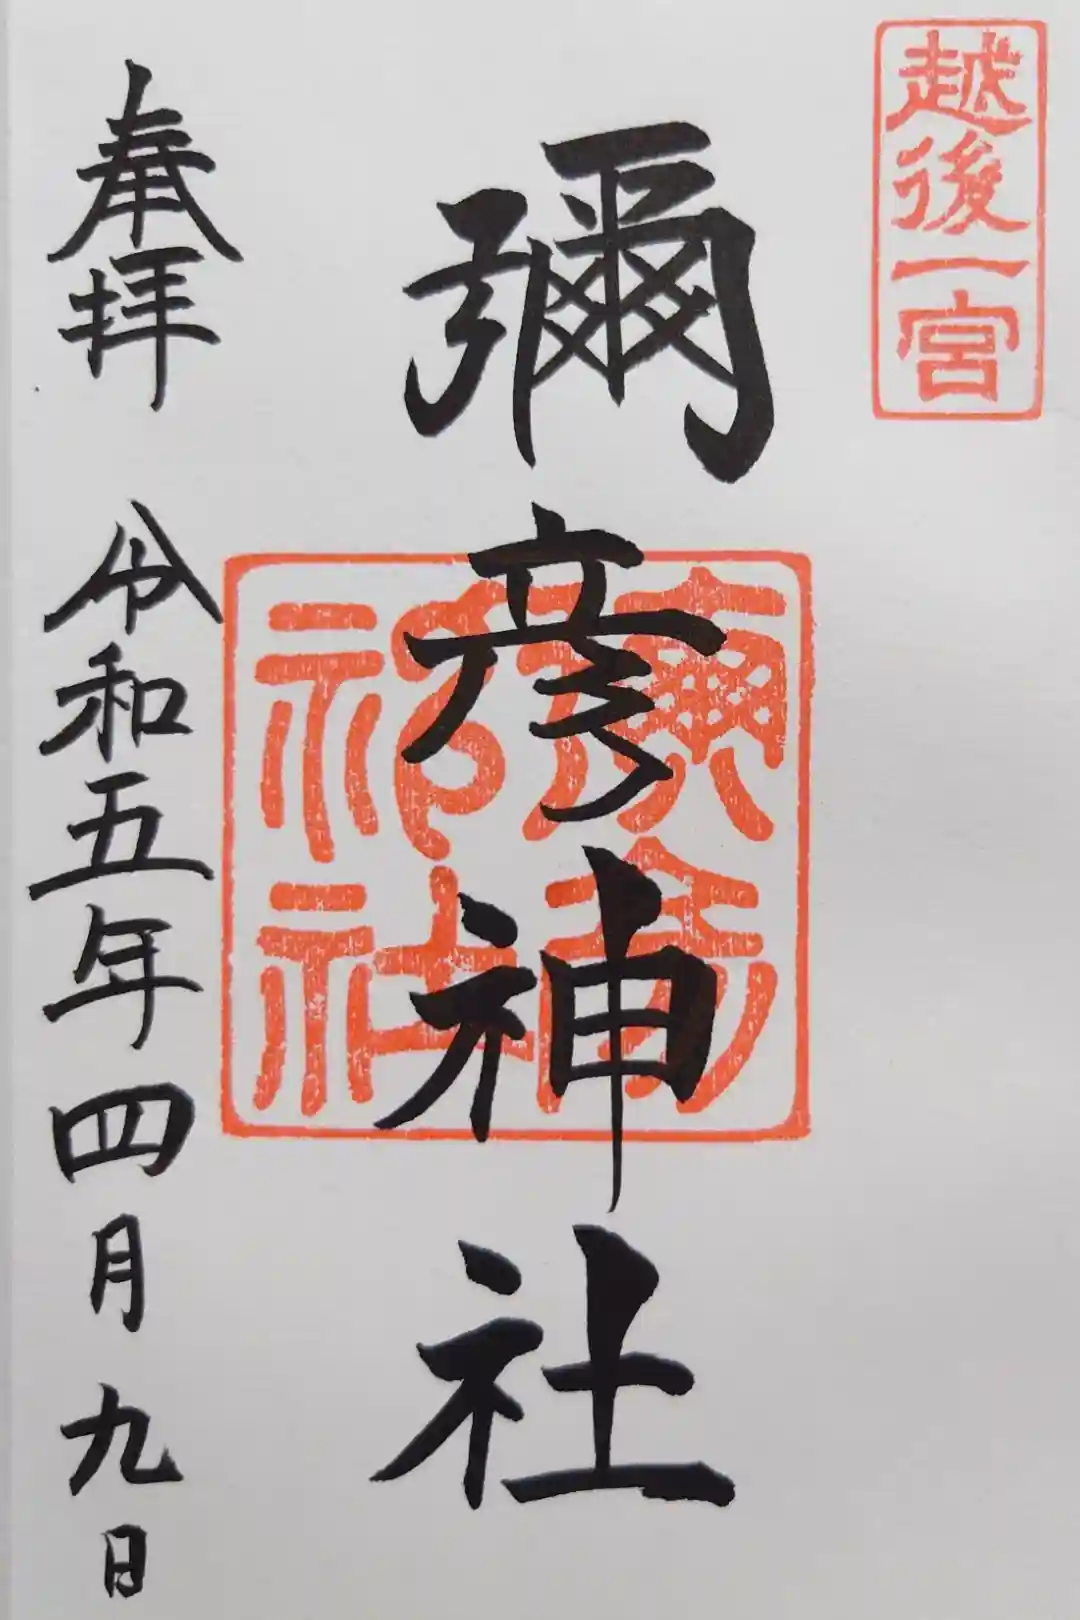 越後一宮
彌彦神社
奉拝 令和五年四月九日